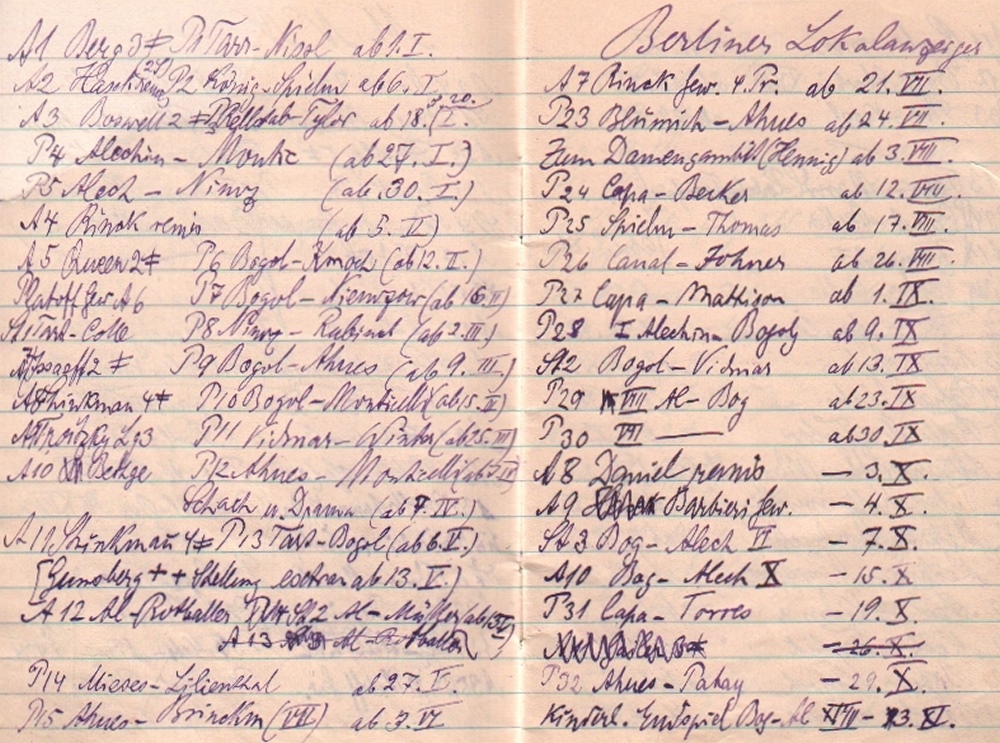 A1 Berg 3‡ P1 Tarr-Nisol ab 1. I.
A2 P2 König-Spielm ab 6. I.
A3 Boswell 2‡ P3 ab 18. I.
P4 Alechin – Montic (ab 27. I.)
P5 Alech – Nimz (ab 30. I.)
A4 Rinck remis (ab 5. II)
A5 Queen 2‡ P6 Bogol-Kmoch (ab 12. II.)
Platoff Gew A6 P7 Bogol-Niemzow (ab 16. II)
St1 Tart-Colle P8 Nimz – Rubinst (ab 2. III.)
2‡ P9 Bogol-Ahues (ab 9. III.)
Shinkman 4‡ P10 Bogol-Monticelli (ab 15. III)
Troitzky P11 Vidmar – Winter (ab 25. III)
A10 Bettge P12 Ahues – Monticelli
Schach u. Drama (ab 7. IV.)
A11 Shinkman 4‡ P13 Tart-Bogol (ab 6. V.)
[Gunsberg ++ Stellung extra ab 13. V.)
A12 Al-Rothaller St2 Al-Müller
A13 Al-Rothaller
P14 Mieses-Lilienthal ab 27. V.
P15 Ahues – Brinckm (VII) ab 3. VI
Berliner Lokalanzeiger
A7 Rinck Gew. 4. Pr. ab 21. VII.
P23 Blümich – Ahues ab 24. VII.
Zum Damengambit (Hennig) ab 3. VIII.
P24 Capa – Becker ab 12. VIII.
P25 Spielm – Thomas ab 17. VIII.
P26 Canal – Johner ab 26. VIII.
P27 Capa – Mattison ab 1. IX.
P28 I Alechin – Bogolj ab 9. IX
St2 Bogol – Vidmar ab 13. IX
P29 VIII Al – Bog ab 23. IX
P30 VII —— ab 30. IX
A8 Daniel remis – 3. X.
A9 Barbieri Gew. – 4. X.
St3 Bog – Alech VI – 7. X.
A10 Bog – Alech X – 15. X
P31 Capa – Torres – 19. X.
3‡ – 26. X.
P32 Ahues – Patay – 29. X.
Kinderl. Endspiel Bog-Al XVII – 3. XI.